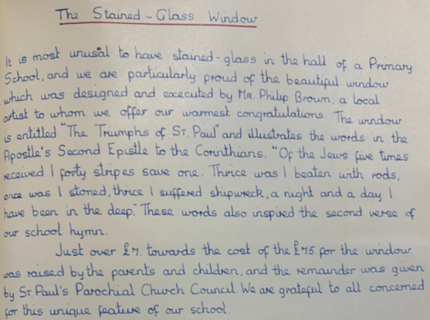 The Stained-Glass Window
It is most unusual to have stained-glass in the hall of a Primary
School, and we are particularly proud of the beautiful window
which was designed and executed by Mr. Philip Brown, a local
artist to whom we offer our warmest congratulations. The window
is entitled "The Triumphs of St. Paul" and illustrates the words in the
Apostle's Second Epistle to the Corinthians. "Of the Jews five times
received I forty stripes save one. Thrice was I beaten with rods,
once was I stoned, thrice I suffered shipwreck, a night and a day I
have been in the deep." These words also inspired the second verse of
our school hymn.
Just over £7. towards the cost of the £75. for the window
was raised by the parents and children, and the remainder was given
by St. Paul's Parochial Church Council. We are grateful to all concerned
for this unique feature of our school.